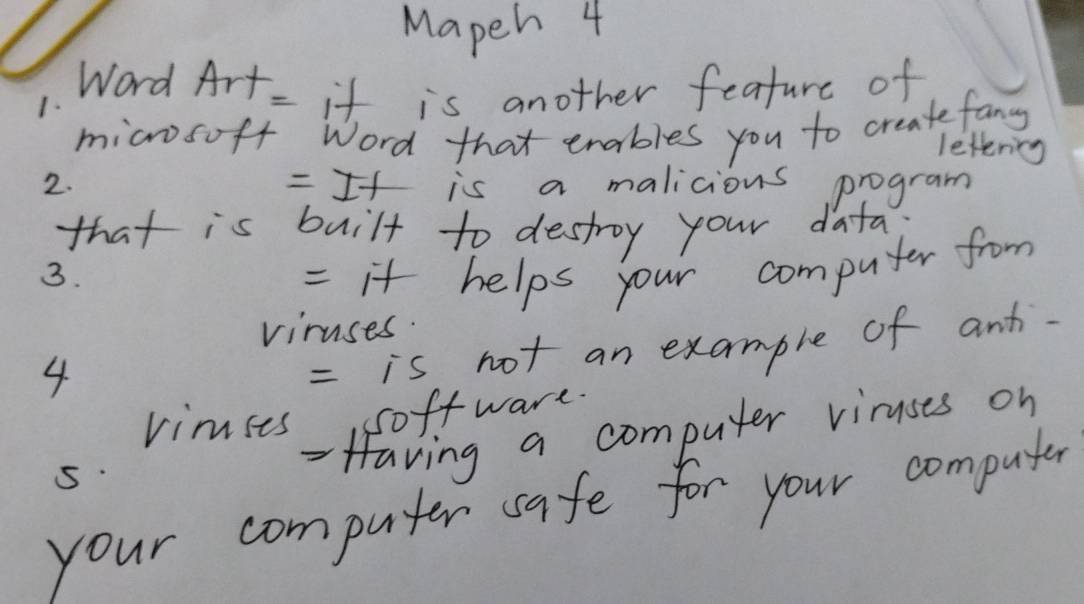 Mapeh 4
1. Word Art = it is another feature of
microsoft Word that enables you to create fancy
lettering
2. = It is a malicious program
that is built to destroy your data.
3. = it helps your computer from
viruses.
4 = is not an example of anti-
viruses software.
5. = Having a computer viruses on
your computer safe for your computer